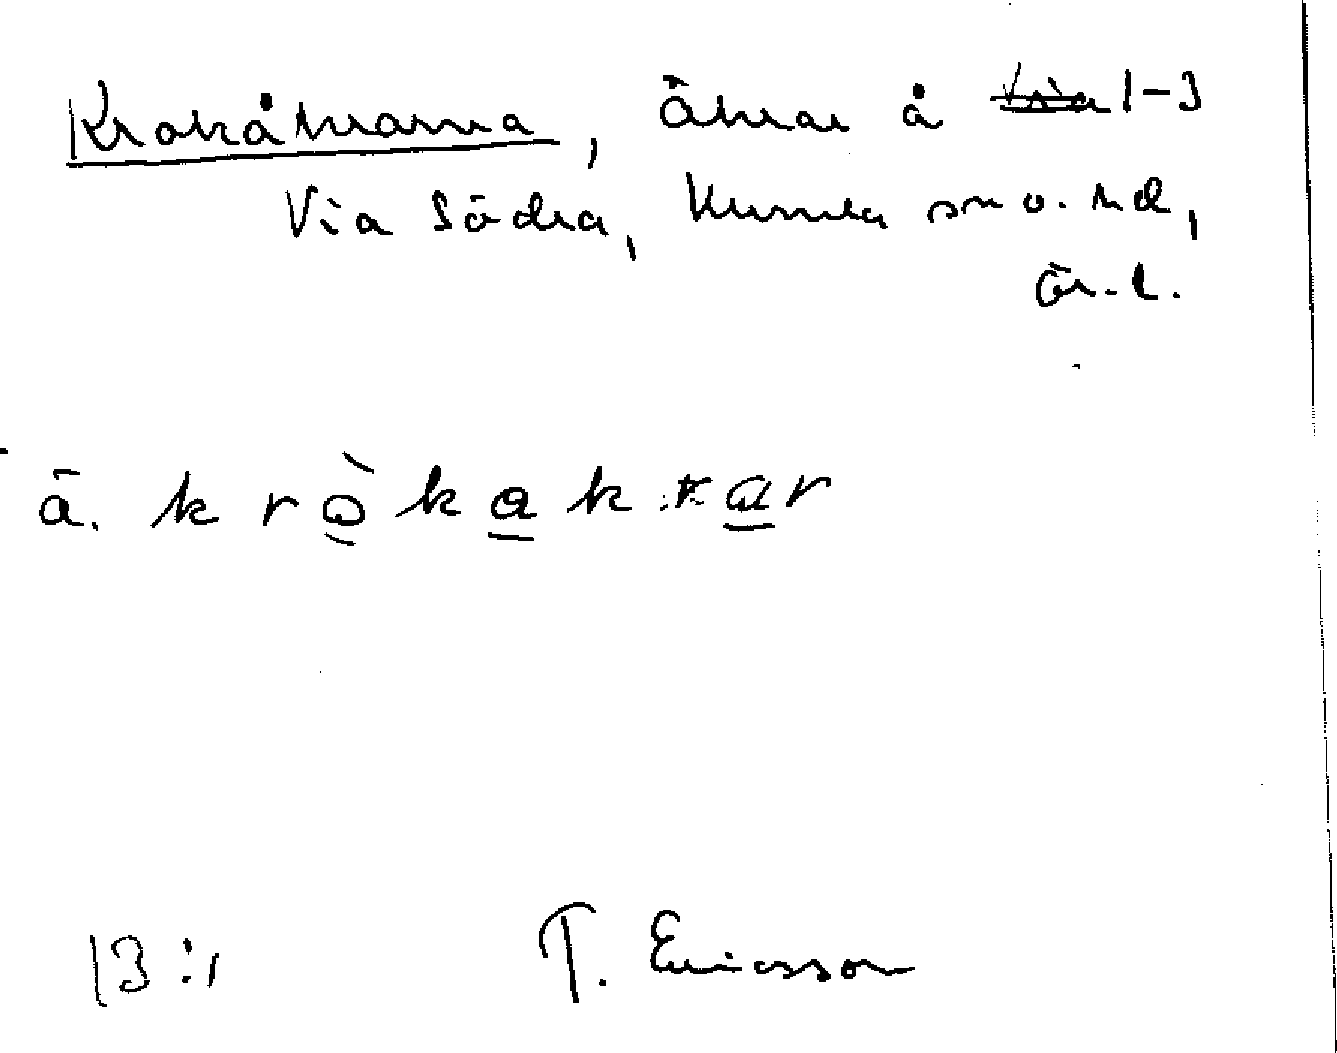 Krokåkrarna, åkrar å Via 1-3
Via Södra, Kumla sn o. hd,
Ör. l.
å. kròkakrar
13:1
T. Ericsson